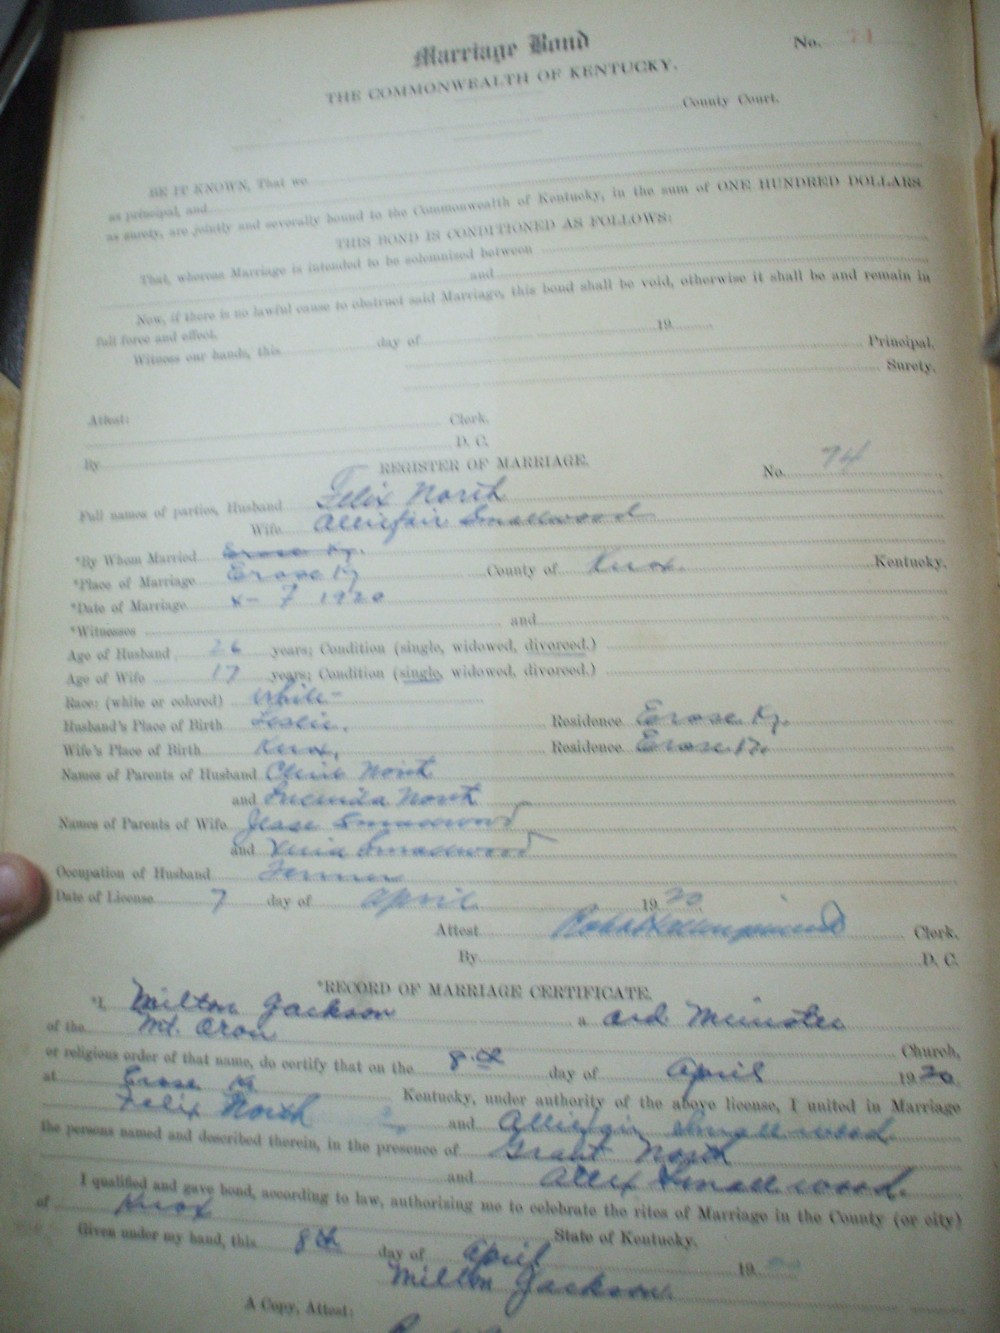 Marriage Bond
No. 71
THE COMMONWEALTH OF KENTUCKY.
County Court.
BE IT KNOWN, That we
as principal, and
as surety, are jointly and severally bound to the Commonwealth of Kentucky, in the sum of ONE HUNDRED DOLLARS
THIS BOND IS CONDITIONED AS FOLLOWS:
That, whereas Marriage is intended to be solemnised between
and
Now, if there is no lawful cause to obstruct said Marriage, this bond shall be void, otherwise it shall be and remain in
full force and effect.
Witness our hands, this day of 19
Principal,
Surety.
Attest:
Clerk.
By D. C.
REGISTER OF MARRIAGE.
No. 74
Full names of parties, Husband Felix North
Wife Alliefair Smallwood
*By Whom Married Erose Ky.
*Place of Marriage Erose Ky County of Knox. Kentucky.
*Date of Marriage 4-7 1920
*Witnesses and
Age of Husband 26 years; Condition (single, widowed, divorced.)
Age of Wife 17 years; Condition (single, widowed, divorced.)
Race: (white or colored) white-
Husband's Place of Birth Leslie. Residence Erose Ky.
Wife's Place of Birth Knox. Residence Erose Ky.
Names of Parents of Husband North
and Lucinda North
Names of Parents of Wife Jesse Smallwood
and Smallwood
Occupation of Husband Farmer
Date of License 7 day of April 1920
Attest Clerk.
By D. C.
*RECORD OF MARRIAGE CERTIFICATE.
*I, Milton Jackson a ord. Minister
of the Mt. Church,
or religious order of that name, do certify that on the 8th day of April 1920
at Erose Ky Kentucky, under authority of the above license, I united in Marriage
Felix North and Alliefair Smallwood.
the persons named and described therein, in the presence of Grant North
and Smallwood.
I qualified and gave bond, according to law, authorising me to celebrate the rites of Marriage in the County (or city)
of Knox State of Kentucky.
Given under my hand, this 8th day of April 19
Milton Jackson.
A Copy, Attest: